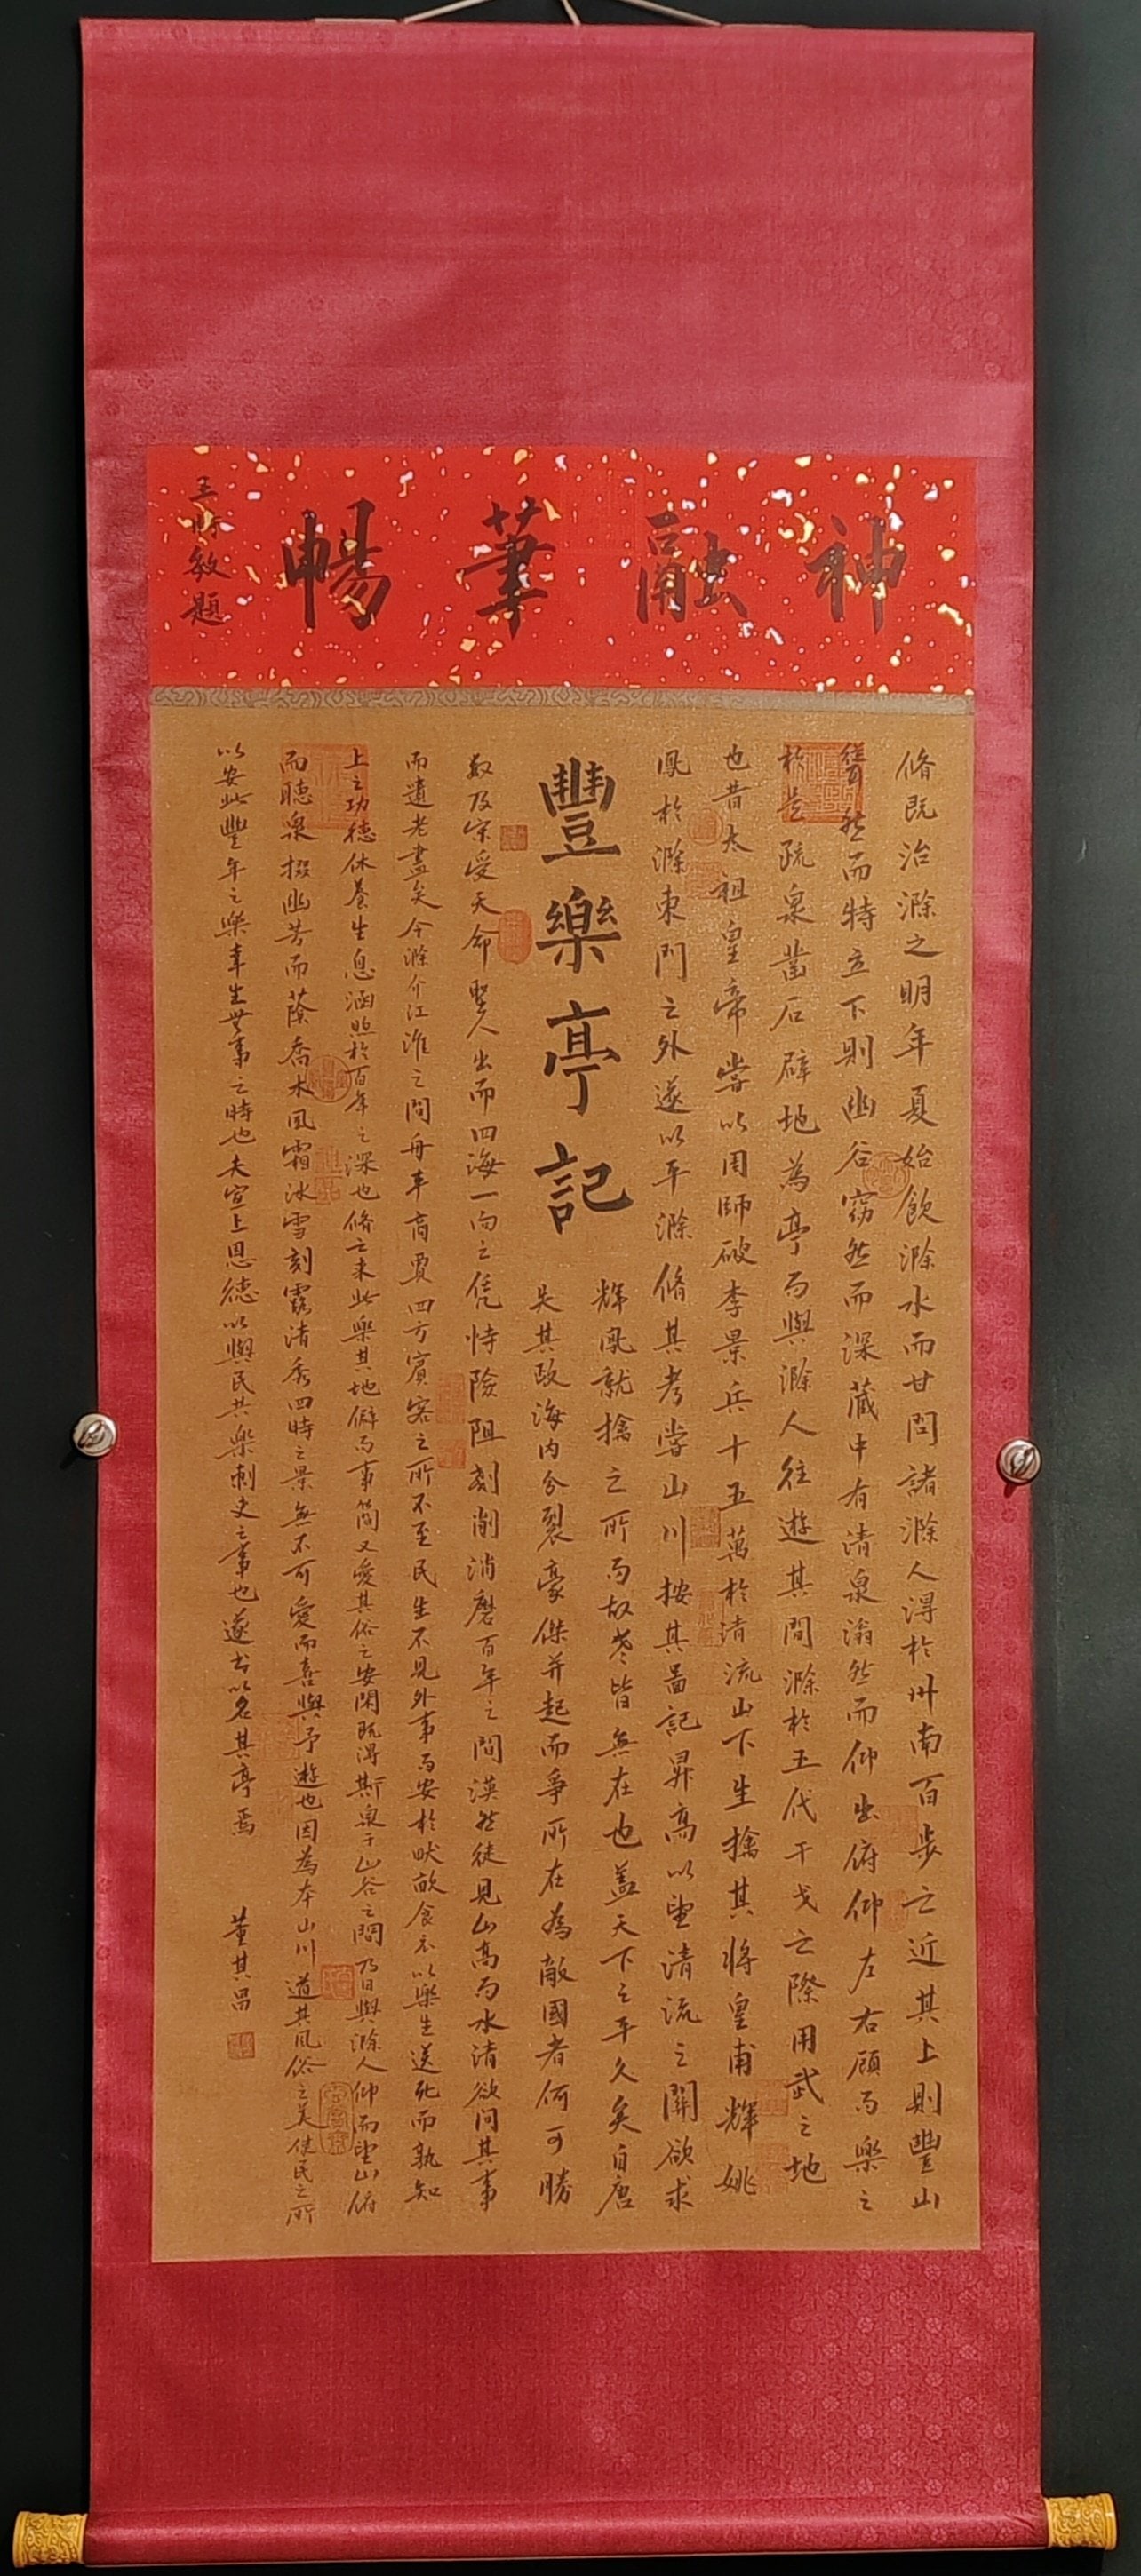 神融筆暢
王時敏題
脩既治滁之明年夏始飲滁水而甘問諸滁人得於州南百步之近其上則豐山
聳然而特立下則幽谷窈然而深藏中有清泉滃然而仰出俯仰左右顧而樂之
於是疏泉鑿石辟地為亭而與滁人往遊其間滁於五代干戈之際用武之地
也昔太祖皇帝嘗以周師破李景兵十五萬於清流山下生擒其將皇甫輝姚
鳳於滁東門之外遂以平滁脩其考嘗山川按其圖記昇高以望清流之關欲求
豐樂亭記
輝鳳就擒之所而故老皆無在也蓋天下之平久矣自唐
失其政海內分裂豪傑并起而爭所在為敵國者何可勝
數及宋受天命聖人出而四海一向之凭恃險阻剗削消磨百年之間漠然徒見山高而水清欲問其事
而遺老盡矣今滁介江淮之間舟車商賈四方賓客之所不至民生不見外事而安於畎畝食衣以樂生送死而孰知
上之功德休養生息涵煦於百年之深也脩之來此樂其地僻而事簡又愛其俗之安閑既得斯泉于山谷之間乃日與滁人仰而望山俯
而聽泉掇幽芳而蔭喬木風霜冰雪刻露清秀四時之景無不可愛而喜與予遊也因為本山川道其風俗之美使民之所
以安此豐年之樂幸生無事之時也夫宣上恩德以與民共樂刺史之事也遂書以名其亭焉
董其昌